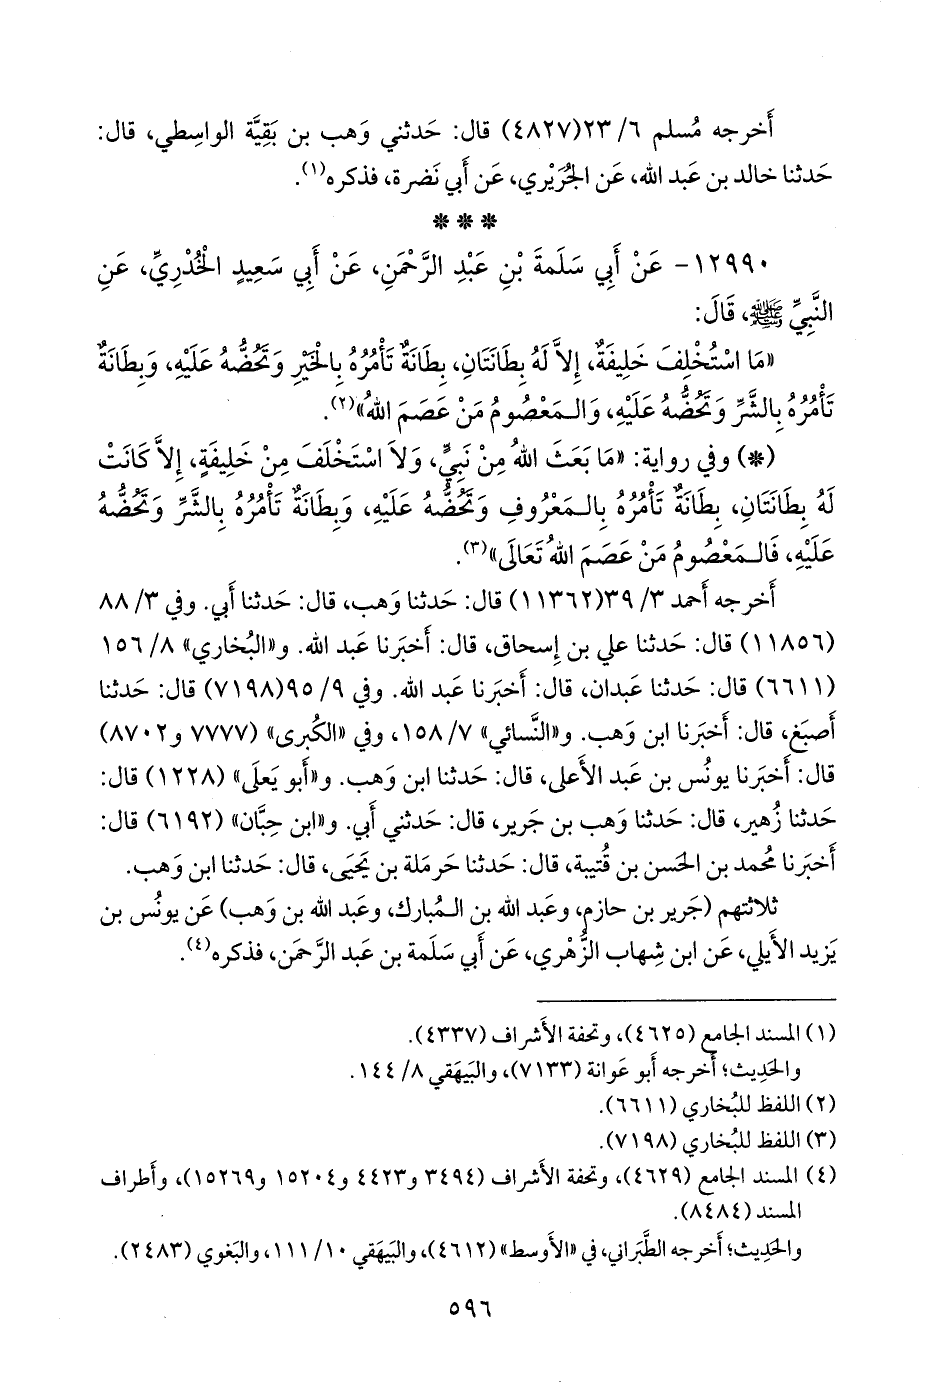 أَخرجه مُسلم ٦/ ٢٣(٤٨٢٧) قال: حَدثني وَهب بن بَقِيَّة الواسِطي، قال:
حَدثنا خالد بن عَبد الله، عَن الجُرَيْري، عَن أَبي نَضرة، فذكره(١).
* * *
١٢٩٩٠- عَنْ أَبِي سَلَمةَ بْنِ عَبْدِ الرَّحْمَنِ، عَنْ أَبِي سَعِيدٍ الْخُدْرِيِّ، عَنِ
النَّبِيِّ ﷺ، قَالَ:
«مَا اسْتُخْلِفَ خَلِيفَةٌ، إِلاَّ لَهُ بِطَانَتَانِ، بِطَانَةٌ تَأْمُرُهُ بِالْخَيْرِ وَتَحُضُّهُ عَلَيْهِ، وَبِطَانَةٌ
تَأْمُرُهُ بِالشَّرِّ وَتَحُضُّهُ عَلَيْهِ، وَالـمَعْصُومُ مَنْ عَصَمَ اللهُ»(٢).
(*) وفي رواية: «مَا بَعَثَ اللهُ مِنْ نَبِيٍّ، وَلاَ اسْتَخْلَفَ مِنْ خَلِيفَةٍ، إِلاَّ كَانَتْ
لَهُ بِطَانَتَانِ، بِطَانَةٌ تَأْمُرُهُ بِالـمَعْرُوفِ وَتَحُضُّهُ عَلَيْهِ، وَبِطَانَةٌ تَأْمُرُهُ بِالشَّرِّ وَتَحُضُّهُ
عَلَيْهِ، فَالـمَعْصُومُ مَنْ عَصَمَ اللهُ تَعَالَى»(٣).
أَخرجه أَحمد ٣/ ٣٩(١١٣٦٢) قال: حَدثنا وَهب، قال: حَدثنا أَبي. وفي ٣/ ٨٨
(١١٨٥٦) قال: حَدثنا علي بن إِسحاق، قال: أَخبَرنا عَبد الله. و«البُخاري» ٨/ ١٥٦
(٦٦١١) قال: حَدثنا عَبدان، قال: أَخبَرنا عَبد الله. وفي ٩/ ٩٥(٧١٩٨) قال: حَدثنا
أَصبَغ، قال: أَخبَرنا ابن وَهب. و«النَّسائي» ٧/ ١٥٨، وفي «الكُبرى» (٧٧٧٧ و٨٧٠٢)
قال: أَخبَرنا يونُس بن عَبد الأَعلى، قال: حَدثنا ابن وَهب. و«أَبو يَعلَى» (١٢٢٨) قال:
حَدثنا زُهير، قال: حَدثنا وَهب بن جَرير، قال: حَدثني أَبي. و«ابن حِبَّان» (٦١٩٢) قال:
أَخبَرنا مُحمد بن الحَسن بن قُتيبة، قال: حَدثنا حَرمَلة بن يَحيَى، قال: حَدثنا ابن وَهب.
ثلاثتهم (جَرير بن حازم، وعَبد الله بن الـمُبارك، وعَبد الله بن وَهب) عَن يونُس بن
يَزيد الأَيلي، عَن ابن شِهاب الزُّهْري، عَن أَبي سَلَمة بن عَبد الرَّحمَن، فذكره(٤).
(١) المسند الجامع (٤٦٢٥)، وتحفة الأَشراف (٤٣٣٧).
والحَدِيث؛ أَخرجه أَبو عَوانة (٧١٣٣)، والبَيهَقي ٨/ ١٤٤.
(٢) اللفظ للبُخاري (٦٦١١).
(٣) اللفظ للبُخاري (٧١٩٨).
(٤) المسند الجامع (٤٦٢٩)، وتحفة الأَشراف (٣٤٩٤ و٤٤٢٣ و١٥٢٠٤ و١٥٢٦٩)، وأَطراف
المسند (٨٤٨٤).
والحَدِيث؛ أَخرجه الطَّبَراني، في «الأَوسط» (٤٦١٢)، والبَيهَقي ١٠/ ١١١، والبَغوي (٢٤٨٣).
٥٩٦